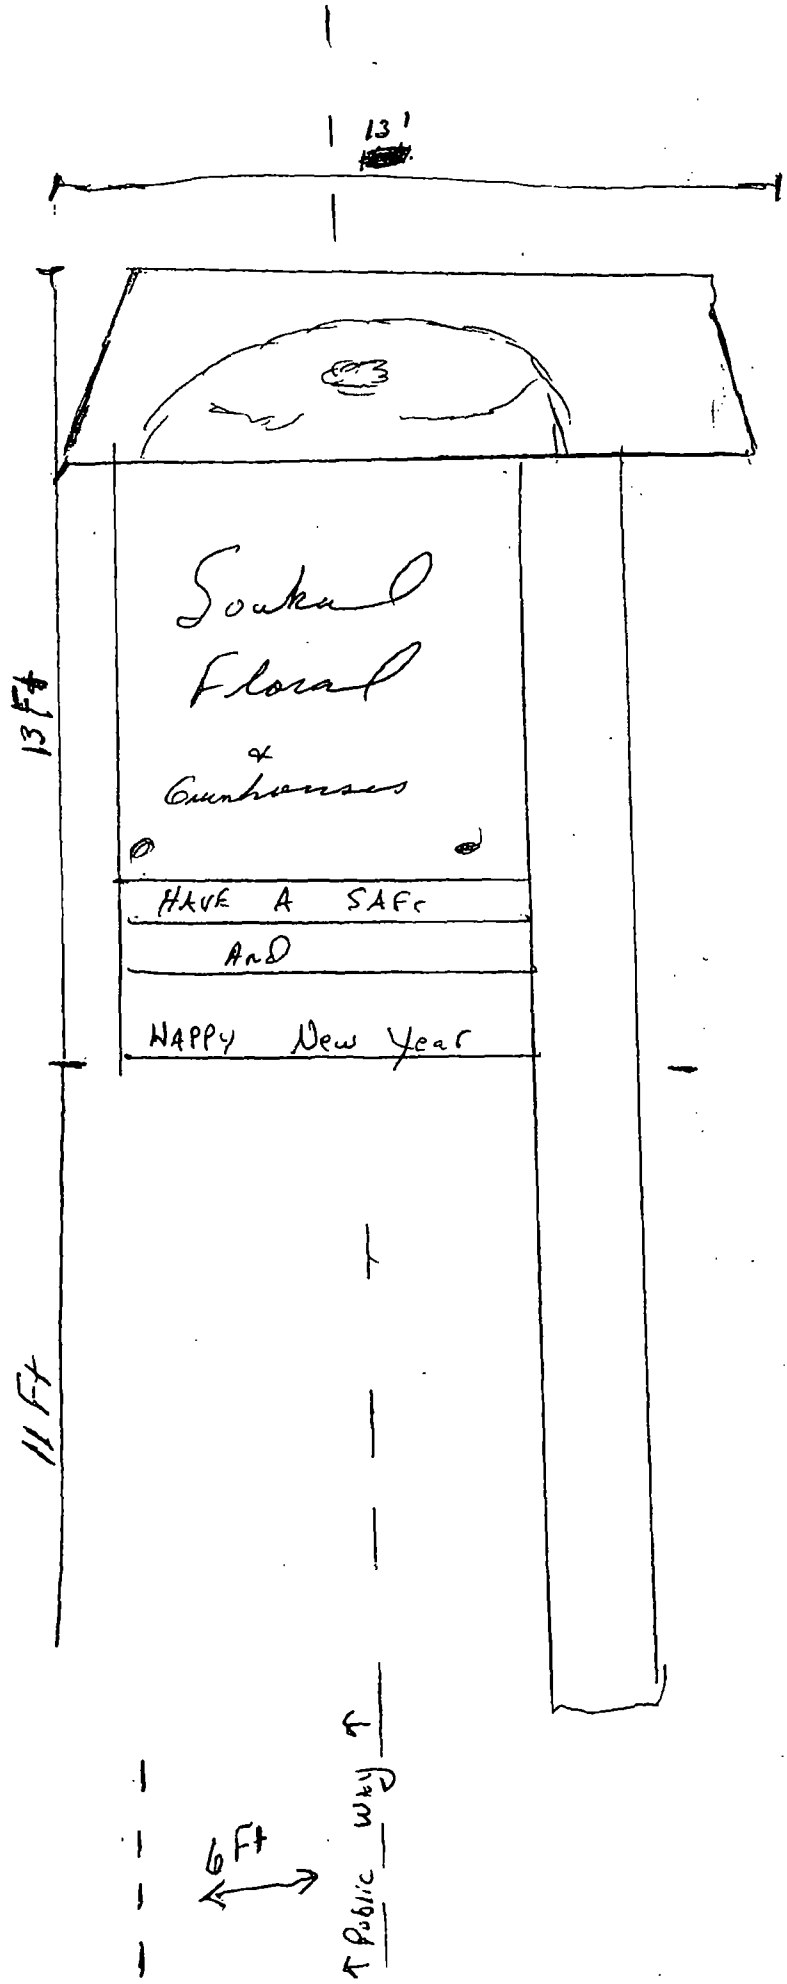 13'
13 Ft
Soukal
Floral
&
Greenhouses
HAVE A SAFE
AnD
HAPPY New Year
11 Ft
6 Ft
↑ Public Way ↑